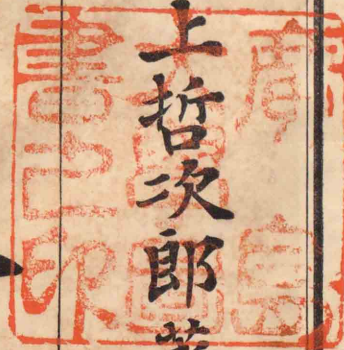 上哲次郎著
廣島
書之印